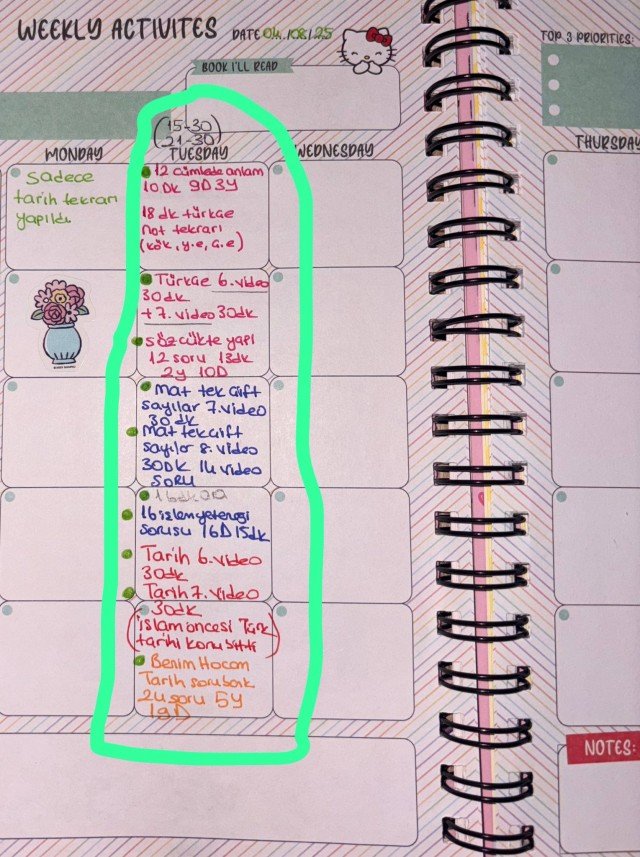 WEEKLY ACTIVITES
DATE 04./08/25
TOP 3 PRIORITIES:
BOOK I'LL READ
(15-30)
(21-30)
MONDAY
TUESDAY
WEDNESDAY
THURSDAY
Sadece
tarih tekrarı
yapıldı.
12 cümlede anlam
10 Dk 9D 3Y
18 dk türkçe
not tekrarı
(kök, y.e, ç.e)
Türkçe 6. video
30dk
+7. video 30dk
sözcükte yapı
12 soru 13dk
2y 10D
Mat tek çift
sayılar 7. video
30 dk
Mat tek çift
sayılar 8. video
30Dk 14 video
SORU
16 işlem yeteneği
sorusu 16D 15dk
Tarih 6. video
30dk
Tarih 7. video
30dk
(islam öncesi Türk
tarihi konu bitti)
Benim Hocam
Tarih soru bank
24 soru 5Y
19D
NOTES: